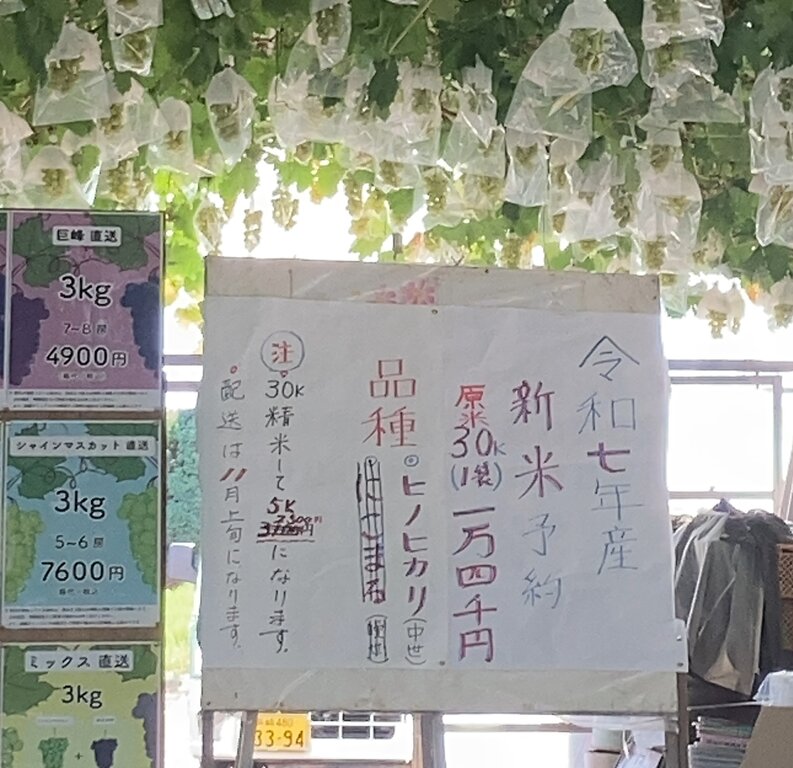 令和七年産
新米予約
原米30K(1袋)一万四千円
品種
◎ヒノヒカリ(中世)
注
30K精米して5K 2500円になります。
配送は11月上旬になります。
巨峰 直送
3kg
7~8 房
4900円
箱代・税込
シャインマスカット 直送
3kg
5~6 房
7600円
箱代・税込
ミックス 直送
3kg
+
480
33-94